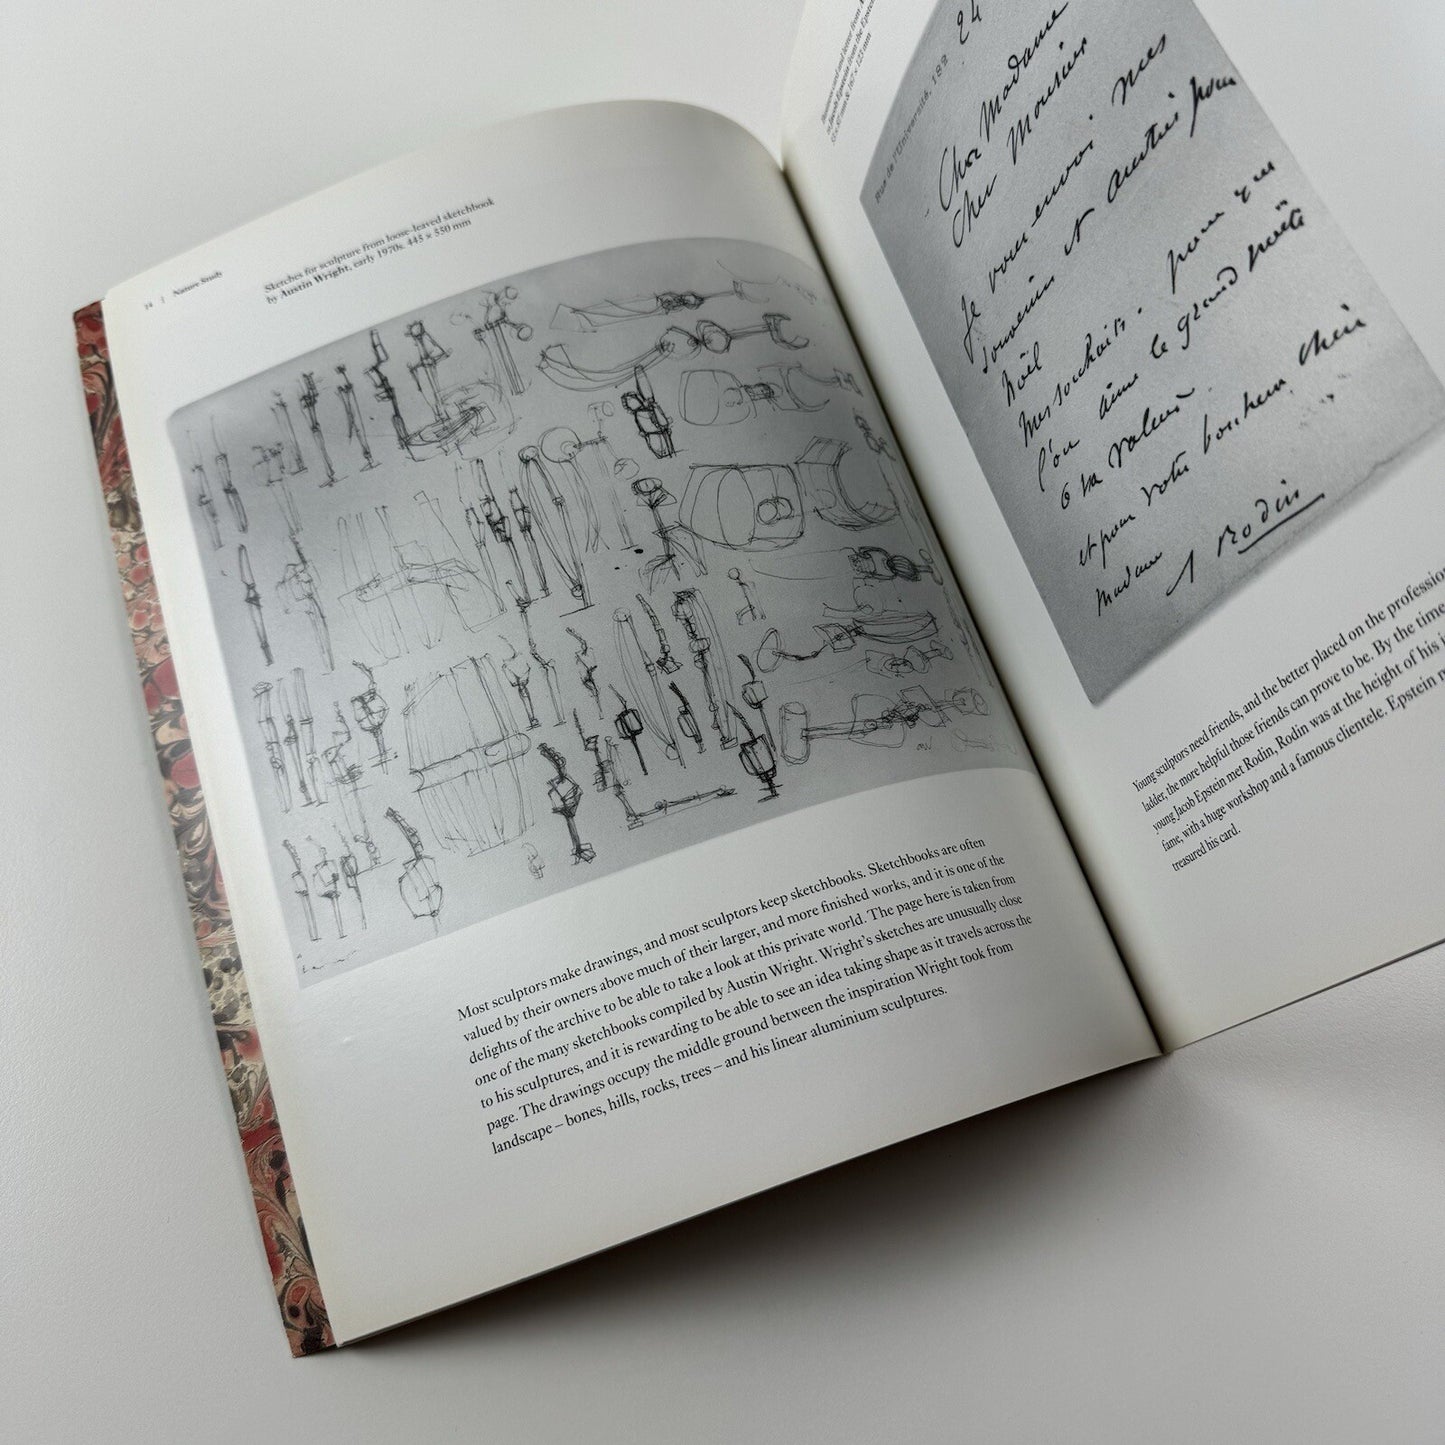 34 | Nature Study
Sketches for sculpture from loose-leaved sketchbook
by Austin Wright, early 1970s. 445 × 550 mm
Most sculptors make drawings, and most sculptors keep sketchbooks. Sketchbooks are often
valued by their owners above much of their larger, and more finished works, and it is one of the
delights of the archive to be able to take a look at this private world. The page here is taken from
one of the many sketchbooks compiled by Austin Wright. Wright's sketches are unusually close
to his sculptures, and it is rewarding to be able to see an idea taking shape as it travels across the
page. The drawings occupy the middle ground between the inspiration Wright took from
landscape – bones, hills, rocks, trees – and his linear aluminium sculptures.
Business card and letter from
Jacob Epstein from the Epstein
mm & 162 × 125 mm
24
Rue de l'Université, 182
Cher Madame
Cher Monsieur
Je vous envoi mes
souvenirs et amitiés pour
Noël
Mes souhaits. pour que
l'on aime le grand poëte
à sa valeur.
et pour votre bonheur chère
Madame
A Rodin
Young sculptors need friends, and the better placed on the profession
ladder, the more helpful those friends can prove to be. By the time
young Jacob Epstein met Rodin, Rodin was at the height of his
fame, with a huge workshop and a famous clientele. Epstein
treasured his card.